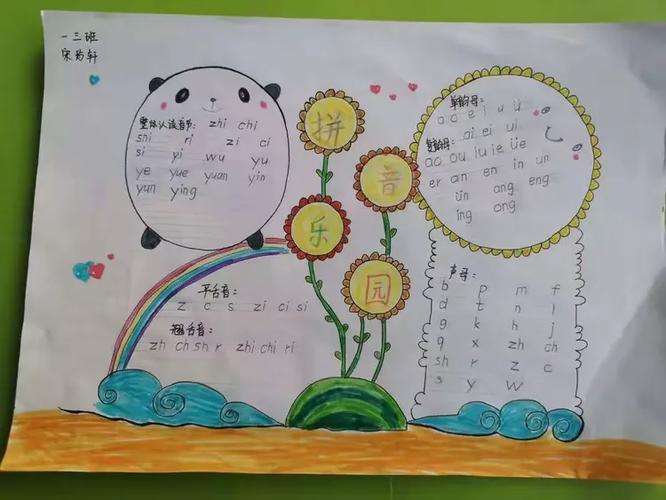 一三班
整体认读音节: zhi chi
shi ri zi ci
si yi wu yu
ye yue yuan yin
yun ying
拼
音
乐
园
单韵母:
a o e i u ü
复韵母: ai ei ui
ao ou iu ie üe
er an en in un
ün ang eng
ing ong
平舌音:
z c s zi ci si
翘舌音:
zh ch sh r zhi chi ri
声母:
b p m f
d t n l
g k h j
q x zh ch
sh r z c
s y w